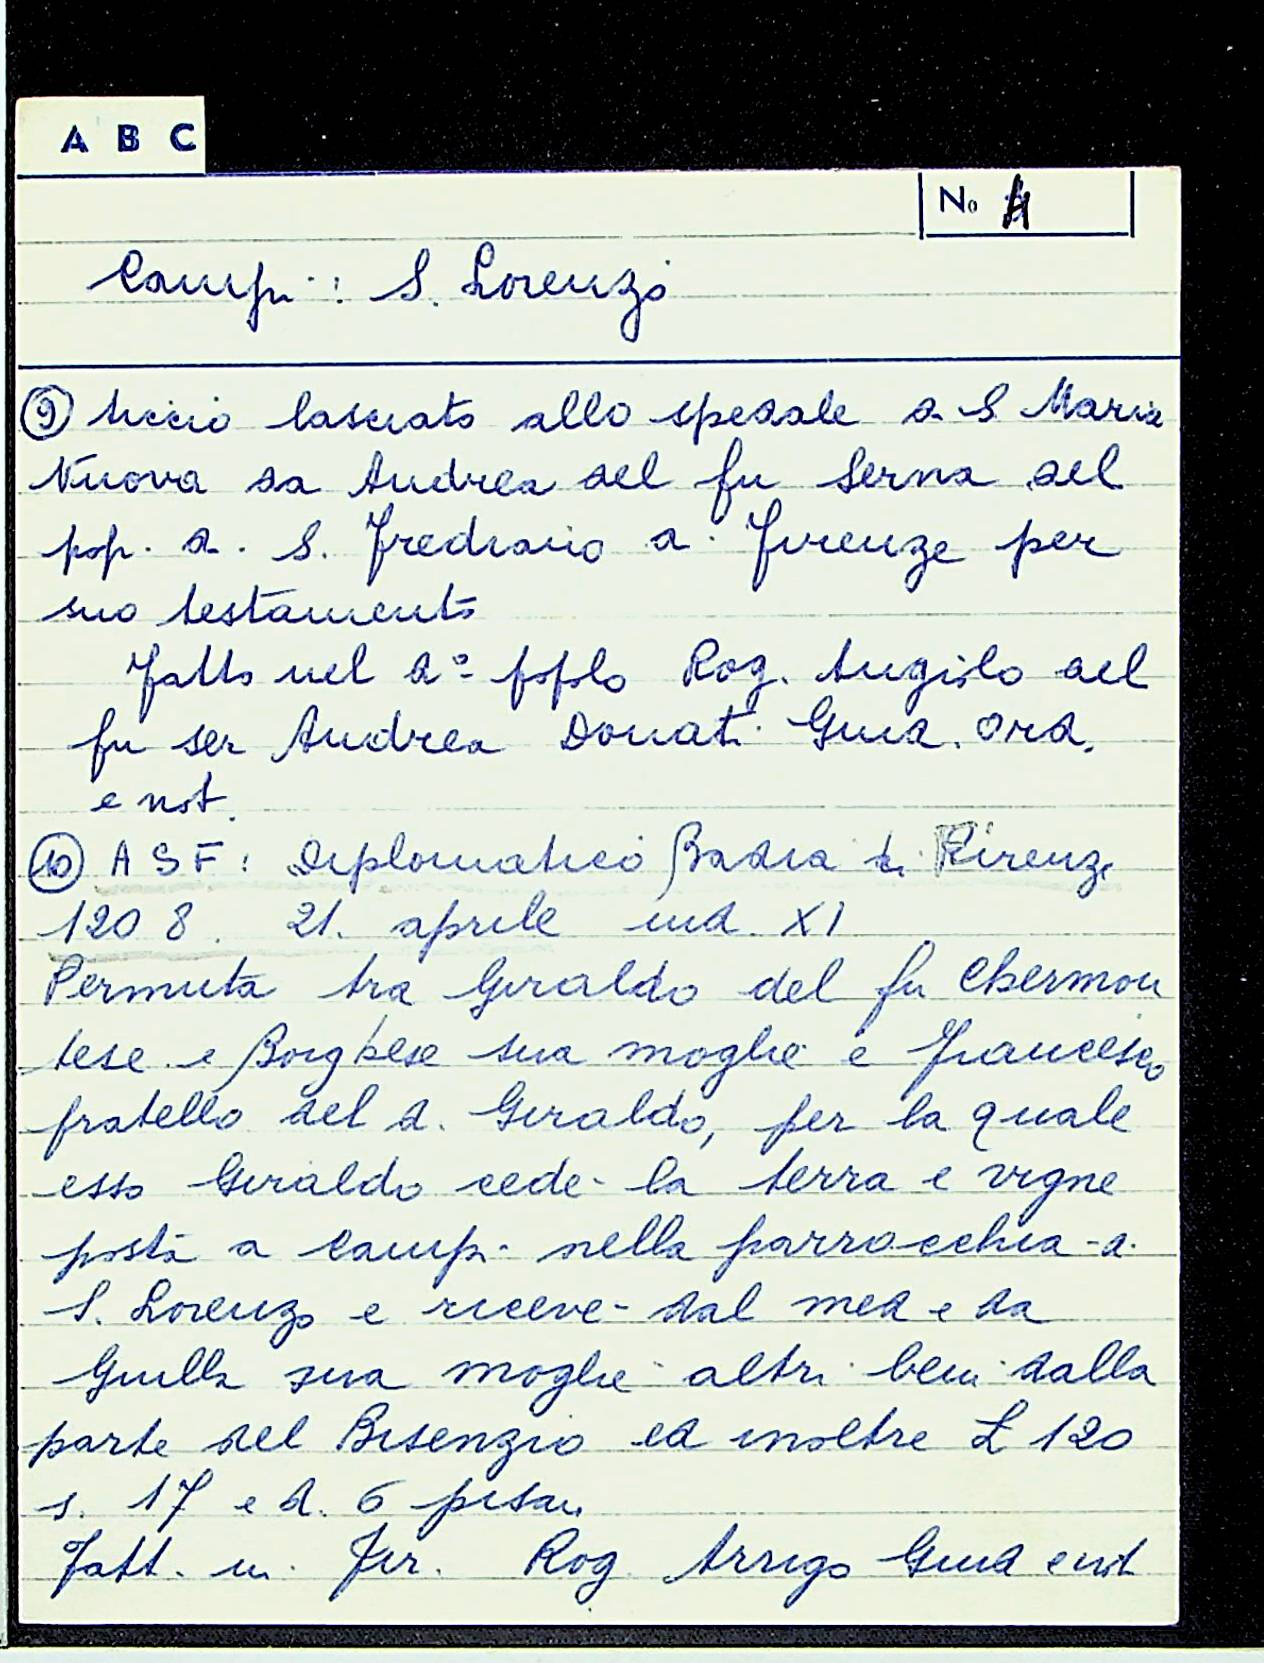 A B C
No 4
Campi: S. Lorenzo
⑨ uccio lasciato allo spedale d. S Maria
Nuova da Andrea del fu Serna del
pop. d. S. Frediano d. Firenze per
suo testamento
Fatto nel d.º popolo Rog. Angiolo del
fu ser Andrea Donati Giud. Ord.
e not.
⑩ A S F: Diplomatico Badia di Firenze
1208. 21. aprile ind. XI
Permuta tra Giraldo del fu Chermon
tese e Borghese sua moglie e Francesco
fratello del d. Giraldo, per la quale
esso Giraldo cede la terra e vigne
posta a Campi nella parrocchia d.
S. Lorenzo e riceve dal med e da
Giulla sua moglie altri beni dalla
parte del Bisenzio ed inoltre £ 120
s. 17 e d. 6 pisani
Fatt. in Fir. Rog Arrigo Giud e not